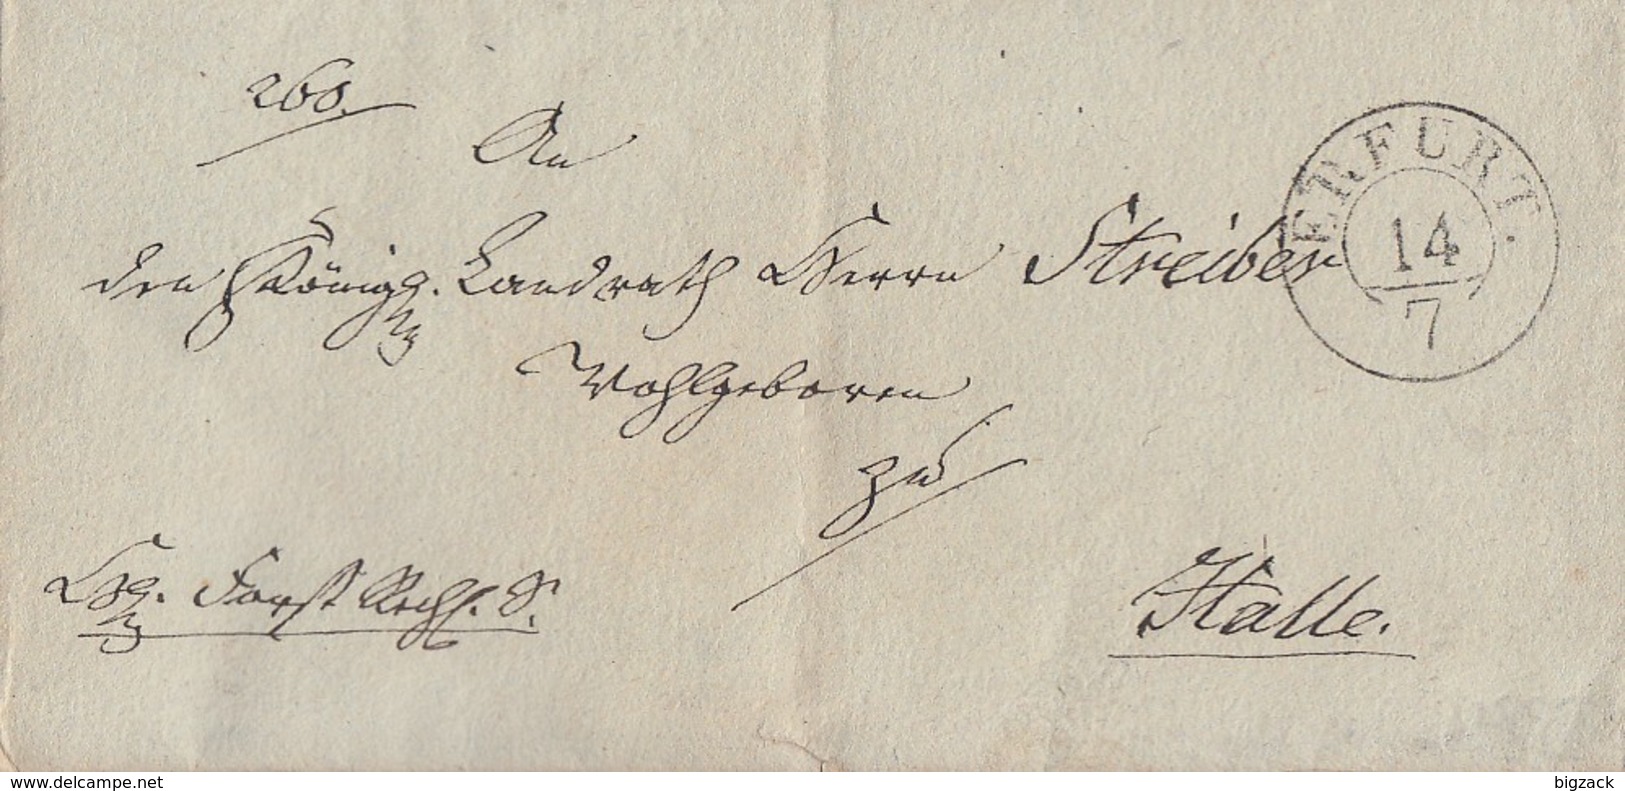 260.
An
den Königl. Landrath Herrn Streiber
Wohlgeboren
zu
Halle.
Forst S.
ERFURT.
14
7
www.delcampe.net
bigzack